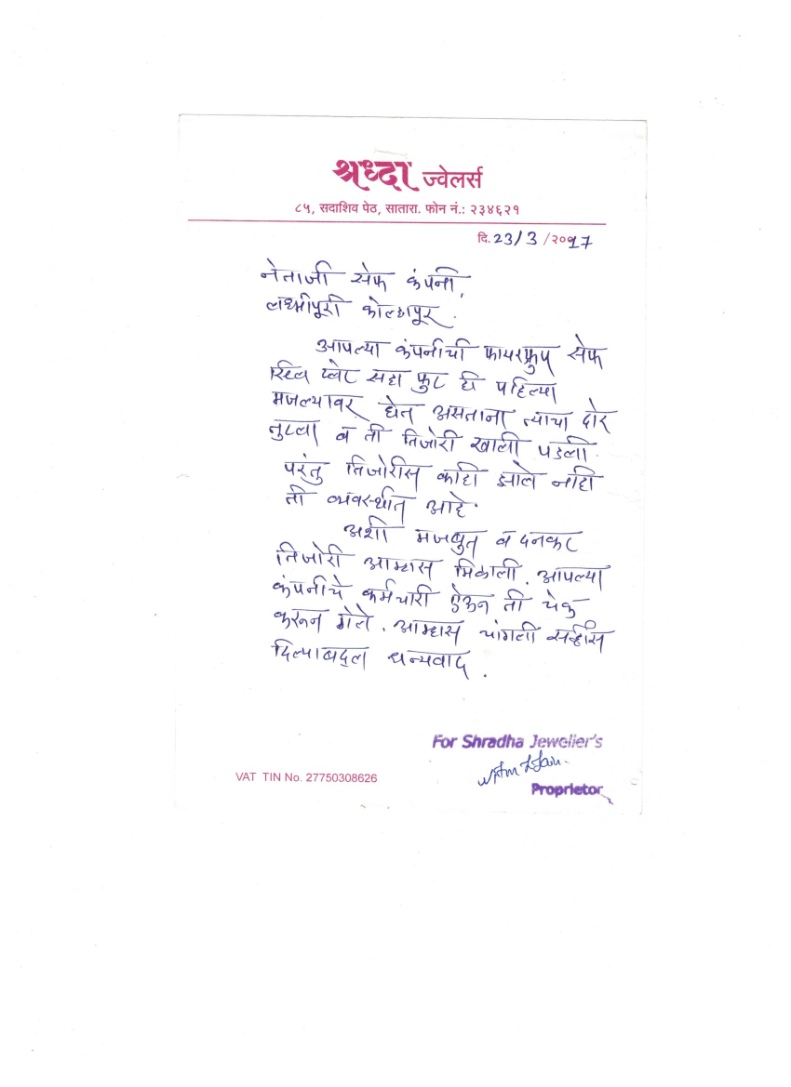 श्रध्दा ज्वेलर्स
८५, सदाशिव पेठ, सातारा. फोन नं.: २३४६२१
दि. 23/3/२०१7
नेताजी सेफ कंपनी,
लक्ष्मीपूरी कोल्हापूर.
आपल्या कंपनीची फायरप्रुफ सेफ
प्लेट सहा फुट ही पहिल्या
मजल्यावर घेत असताना त्याचा दोर
तुटला व ती तिजोरी खाली पडली.
परंतु तिजोरीस काही झाले नाही
ती व्यवस्थीत आहे.
अशी मजबुत व दनकट
तिजोरी आम्हास मिळाली. आपल्या
कंपनीचे कर्मचारी ऐऊन ती चेक
करून गेले. आम्हास चांगली सर्व्हीस
दिल्याबद्दल धन्यवाद.
For Shradha Jeweller's
Proprietor
VAT TIN No. 27750308626